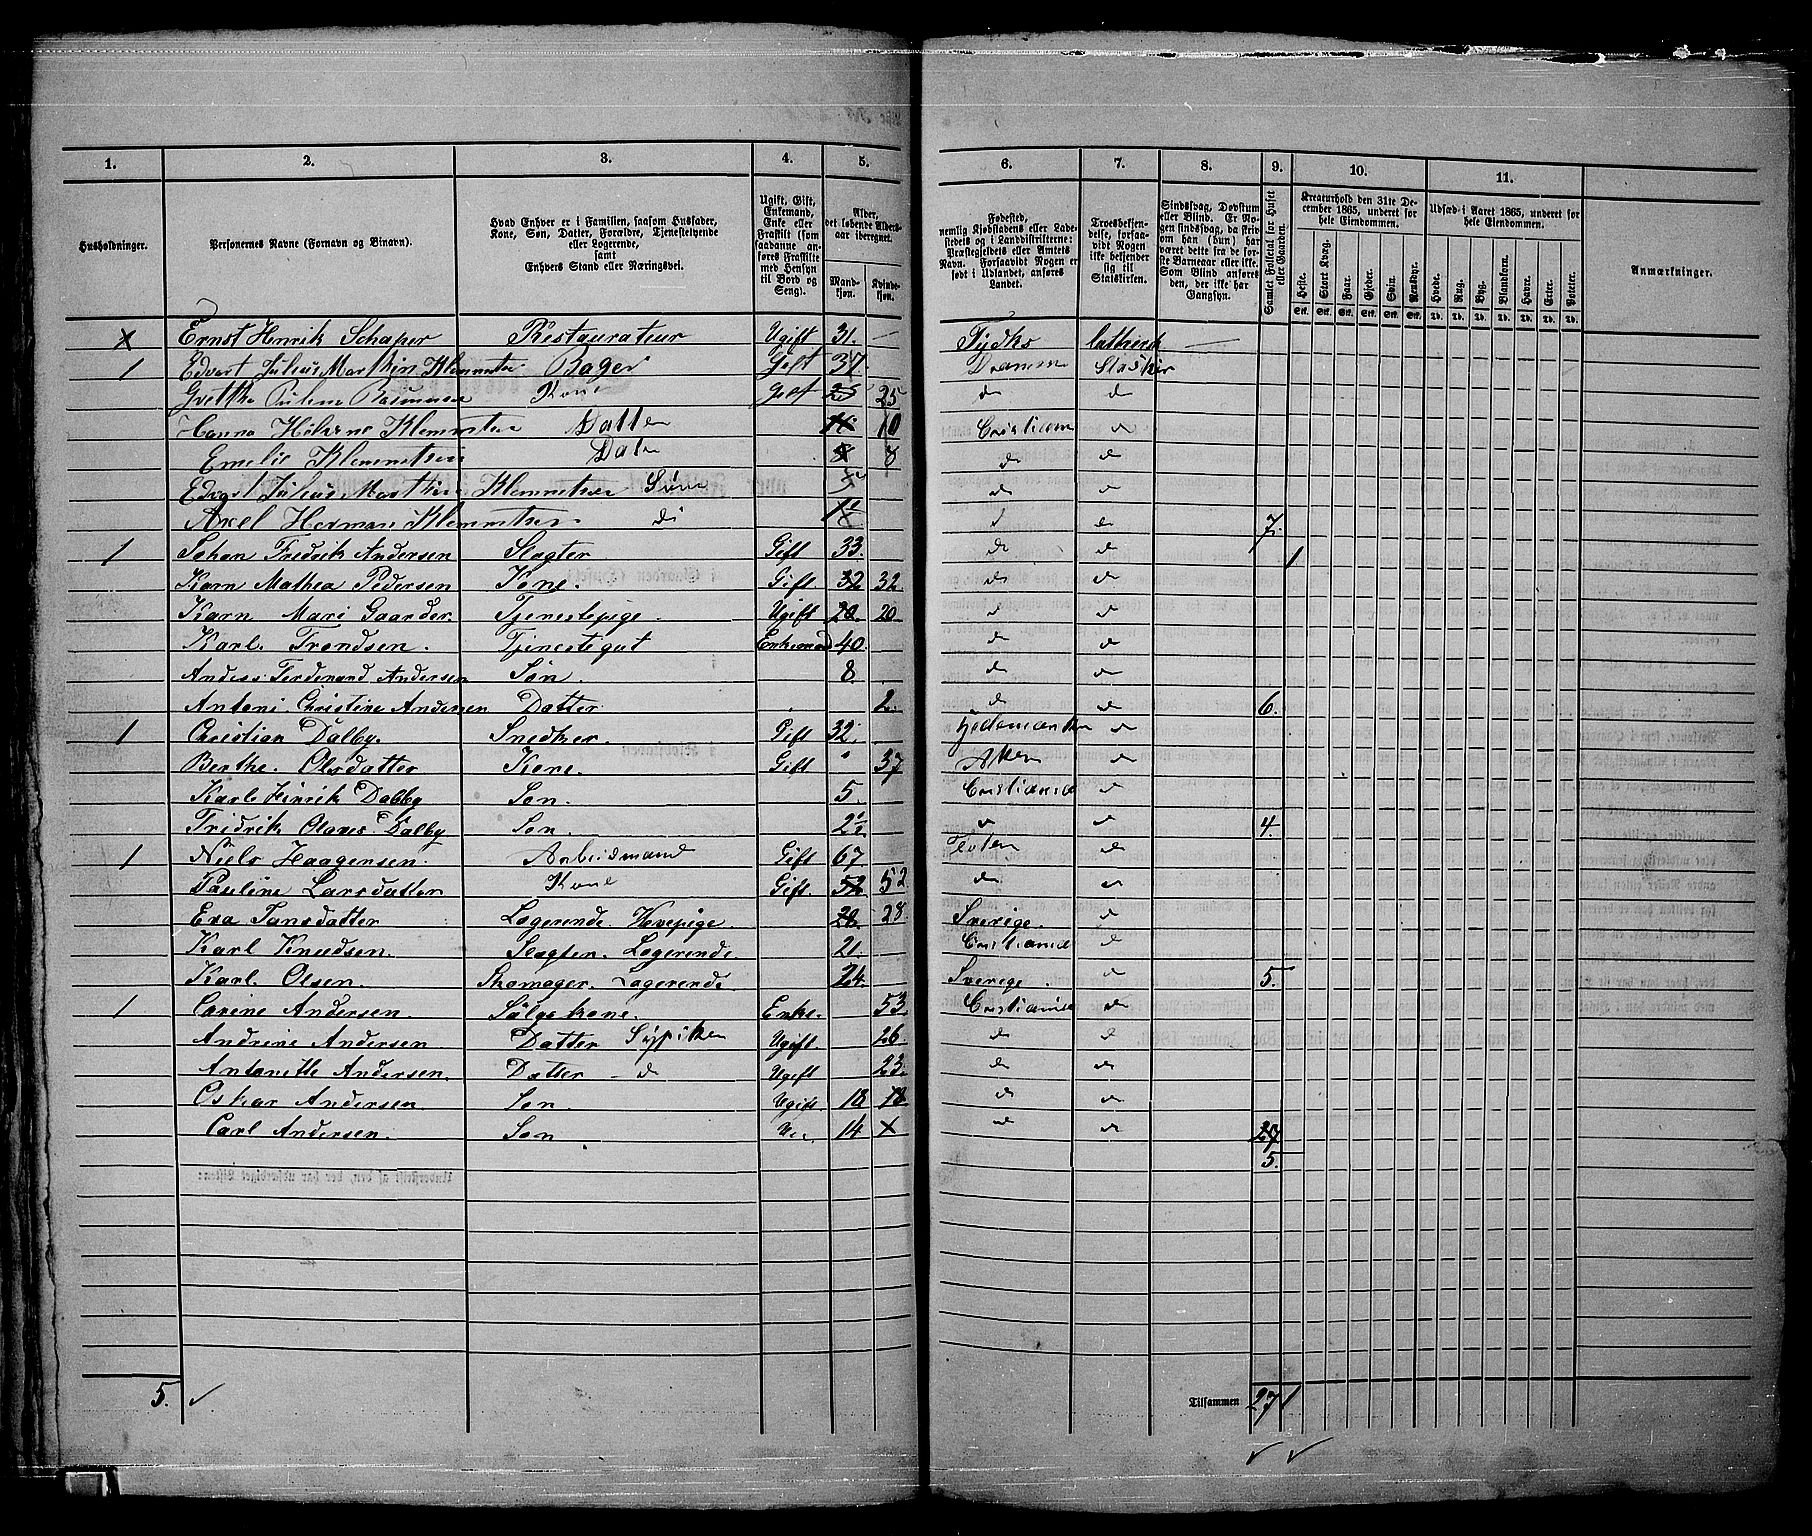 1. 2. 3. 4. 5. 6. 7. 8. 9. 10. 11.
Husholdninger.
Personernes Navne (Fornavn og Binavn).
Hvad Enhver er i Familien, saasom Husfader, Kone, Søn, Datter, Forældre, Tjenestetyende eller Logerende, samt Enhvers Stand eller Næringsvei.
Ugift, Gift, Enkemand, Enke eller Fraskilt (som saadanne anføres Fraskilte med Hensyn til Bord og Seng).
Alder, det løbende Aldersaar iberegnet.
Mandkjøn. Kvindekjøn.
Fødested, nemlig Kjøbstadens eller Ladestedets og i Landdistrikterne: Præstegjeldets eller Amtets Navn. Forsaavidt Nogen er født i Udlandet, anføres Landet.
Troesbekjendelse, forsaavidt Nogen ikke bekjender sig til Statskirken.
Sindssvag, Døvstum eller Blind. Er Nogen sindssvag, da skriv om han (hun) har været dette fra de første Barneaar eller ikke. Som Blind anføres den, der ikke har Gangsyn.
Samlet Folketal for Huset eller Gaarden.
Kreaturhold den 31te December 1865, underet for hele Eiendommen.
Heste. Stort Kvæg. Faar. Gjeder. Svin. Rensdyr.
Stk. Stk. Stk. Stk. Stk. Stk.
Udsæd i Aaret 1865, underet for hele Eiendommen.
Hvede. Rug. Byg. Blandkorn. Havre. Erter. Poteter.
Td. Td. Td. Td. Td. Td. Td.
Anmærkninger.
x Ernst Henrik Schaper Restaurateur Ugift 31. — Tydks —
1 Edvart Julius Marthin Klemmetsen Bager Gift 37 Dramme
Kone Gift 25 25 do do
Hanna Helene Klemmetsen Datter 10 Cristiania do
Emelie Klemmetsen Dater 8 8 do do
Edvart Julius Marthin Klemmetsen Sønn do do
Axel Herman Klemmetsen di do do 7.
1 Johan Fredrik Andersen Slagter Gift 33. do do 1
Karn Mathea Pedersen Kone. Gift. 32 32. do do
Karn Mari Gaarder. Tjenestepige. Ugift 20 20. do do
Karl. Trondsen. Tjenestegut Enkemand 40. do do
Anders Ferdinand Andersen Søn. 8. do do
Antoni Christine Andersen Datter. 2. do do 6.
1 Christian Dalby. Snedker. Gift 32. do
Berthe. Olsdatter Kone. Gift " 37 Asker do
Karl Hinrik Dalby Søn. 5. Cristiania do
Fridrik Olaves. Dalby Søn. 2½ do do 4.
1 Niels Haagensen. Arbeidmand Gift 67 Toten do
Pauline Larsdatter Kone Gift. 52 52 do do
Eva Jansdatter Logerende. Havepige. 28. 28 Sverige. do
Karl Knudsen. Slagter. Logerende 21. Cristiania do
Karl. Olsen. Skomager. Logerende 24. Sverige. do 5.
1 Carine Andersen. Sælgskone. Enke. 53. Cristiania do
Andrine Andersen Datter Sypiken Ugift. 26. do do
Antonette Andersen. Datter - do Ugift 23. do do
Oskar Andersen. Søn. Ugift. 18 18 do do
Carl Andersen. Søn 14 x do do 27
5.
5. ✓ Tilsammen 27 1
✓ ✓